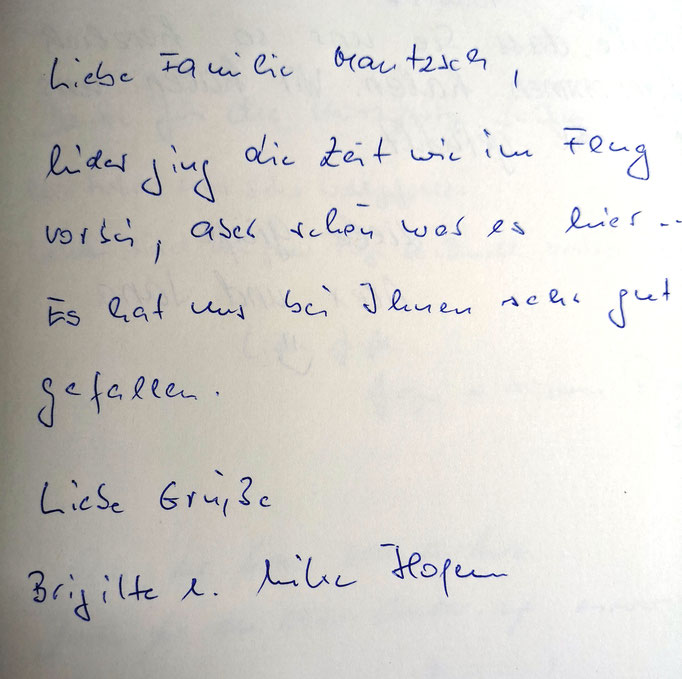 Liebe Familie Mantzsch,
leider ging die Zeit wie im Flug
vorbei, aber schön war es hier...
Es hat uns bei Ihnen sehr gut
gefallen.
Liebe Grüße
Brigitte u.